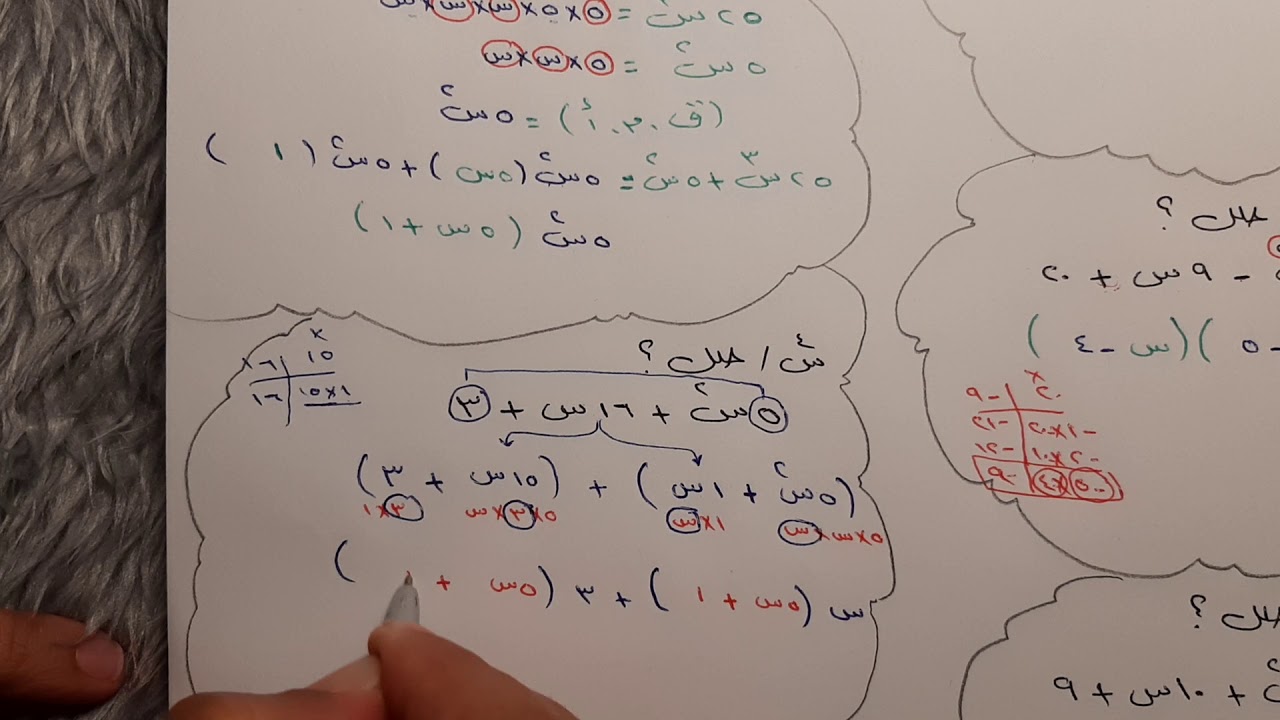 ٢٥س٣ = ٥×٥×س×س×س
٥س٢ = ٥×س×س
(ق.م.أ) = ٥س٢
٢٥س٣+٥س٢ = ٥س٢(٥س)+٥س٢(١)
٥س٢(٥س+١)
س٤/ حلل؟
٥س٢ + ١٦س + ٣
(٥س٢ + ١س) + (١٥س + ٣)
٥×س×س ١×س ٥×٣×س ٣×١
س(٥س + ١) + ٣(٥س + ١)
× ١٥ | ١٦+
١×١٥ | ١٦
حلل؟
- ٩س + ٢٠
- ٥)(س - ٤)
× ٢٠ | -٩
-١×-٢٠ | -٢١
-٢×-١٠ | -١٢
-٥×-٤ | -٩
حلل؟
+ ١٠س + ٩